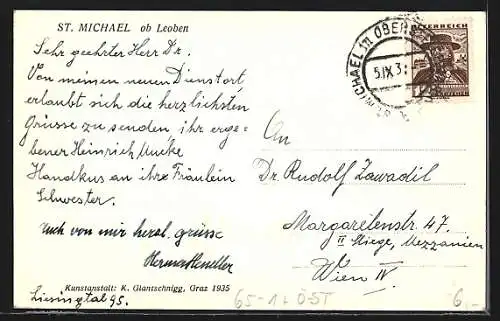 ST. MICHAEL ob Leoben
Sehr geehrter Herr Dr.
Von meinem neuen Dienstort
erlaubt sich die herzlichsten
Grüsse zu senden ihr erge-
bener Heinrich
Handkus an ihre Fräulein
Schwester.
Auch von mir herzl. Grüsse
Kunstanstalt: K. Glantschnigg, Graz 1935
Liesingtal 95.
ST. MICHAEL in OBERST
5.IX.3
ÖSTERREICH
An
Dr. Rudolf Zawadil
Margaretenstr. 47.
II Stiege, Mezzanien
Wien IV.
65-1+ÖST
6,-